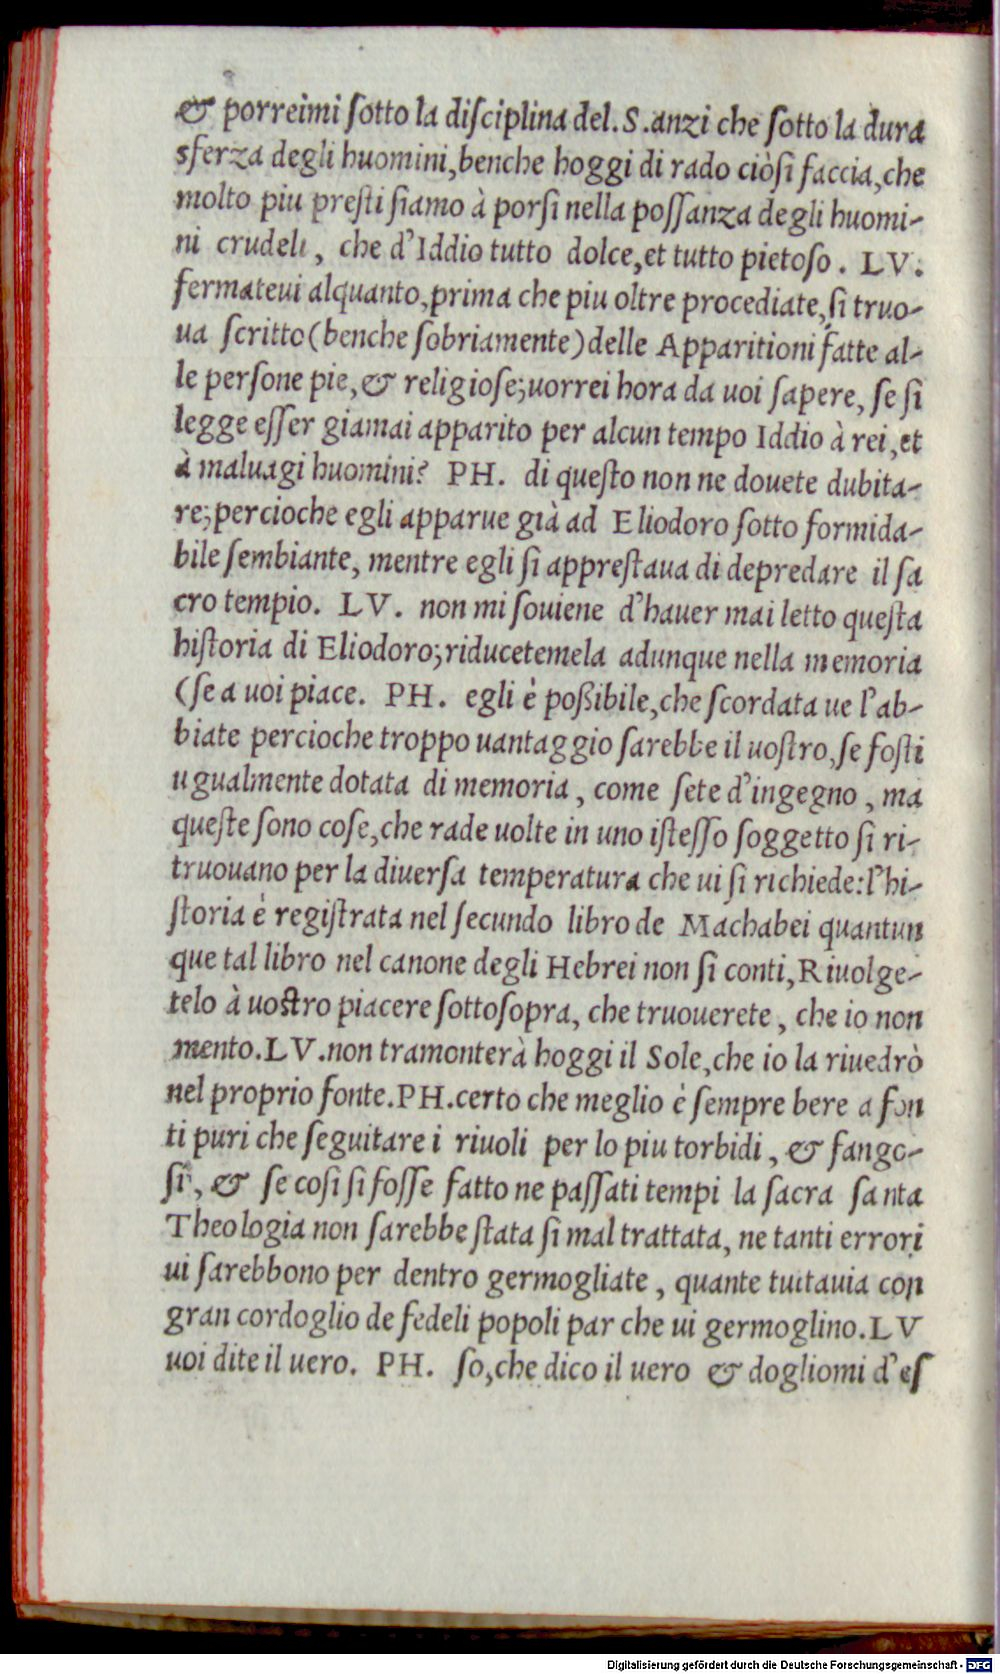 & porreimi ſotto la diſciplina del.S.anzi che ſotto la dura
sferza degli huomini,benche hoggi di rado ciòſi faccia,che
molto piu preſti ſiamo à porſi nella poſſanza degli huomi-
ni crudeli, che d'Iddio tutto dolce,et tutto pietoſo. LV.
fermateui alquanto,prima che piu oltre procediate,ſi truo-
ua ſcritto(benche ſobriamente)delle Apparitioni fatte al-
le perſone pie,& religioſe;uorrei hora da voi ſapere, ſe ſi
legge eſſer giamai apparito per alcun tempo Iddio à rei,et
à maluagi huomini? PH. di queſto non ne douete dubita-
re;percioche egli apparue già ad Eliodoro ſotto formida-
bile ſembiante, mentre egli ſi appreſtaua di depredare il ſa
cro tempio. LV. non mi ſouiene d'hauer mai letto queſta
hiſtoria di Eliodoro;riducetemela adunque nella memoria
(ſe a uoi piace. PH. egli è poßibile,che ſcordata ue l'ab-
biate percioche troppo uantaggio ſarebbe il uoſtro,ſe foſti
ugualmente dotata di memoria, come ſete d'ingegno, ma
queſte ſono coſe,che rade uolte in uno iſteſſo ſoggetto ſi ri-
truouano per la diuerſa temperatura che ui ſi richiede:l'hi-
ſtoria è regiſtrata nel ſecundo libro de Machabei quantun
que tal libro nel canone degli Hebrei non ſi conti,Riuolge-
telo à uoſtro piacere ſottoſopra, che truouerete, che io non
mento.LV.non tramonterà hoggi il Sole,che io la riuedrò
nel proprio fonte.PH.certo che meglio è ſempre bere a fon
ti puri che ſeguitare i riuoli per lo piu torbidi, & fango-
ſi, & ſe coſi ſi foſſe fatto ne paſſati tempi la ſacra ſanta
Theologia non ſarebbe ſtata ſi mal trattata, ne tanti errori
ui ſarebbono per dentro germogliate, quante tuttauia con
gran cordoglio de fedeli popoli par che ui germoglino.LV
uoi dite il uero. PH. ſo,che dico il uero & dogliomi d'eſ
Digitalisierung gefördert durch die Deutsche Forschungsgemeinschaft - DFG